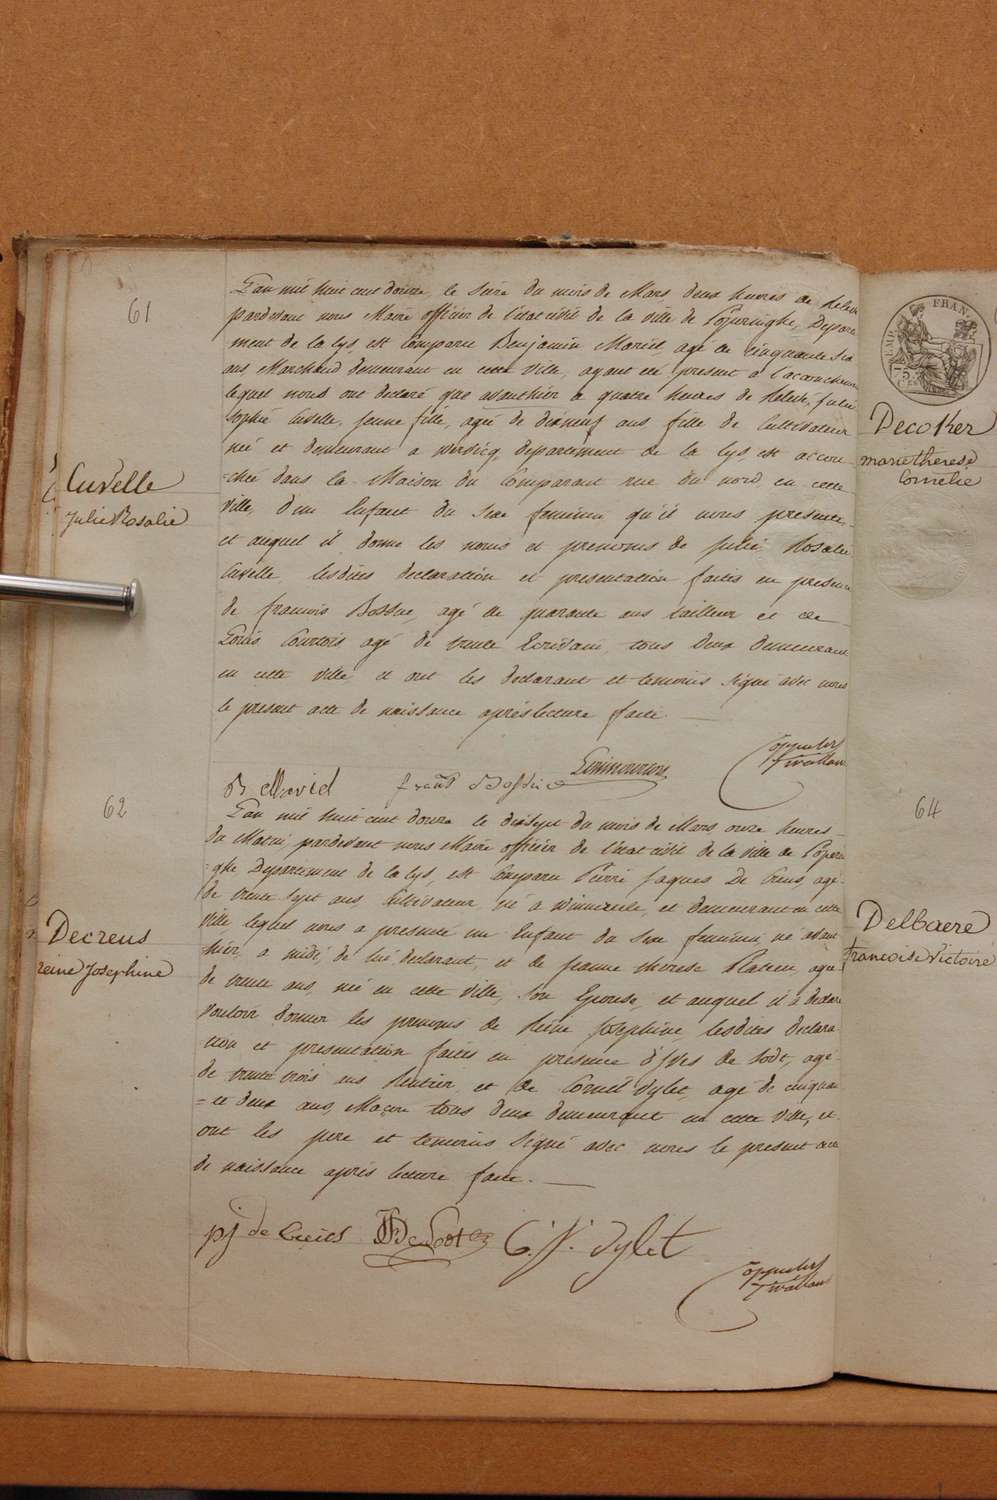 61
L'an mil huit cent douze, le seize du mois de Mars deux heures de Relevé
pardevant nous Maire officier de l'état civil de la ville de Poperinghe, Depare
ment de la Lys, est Comparu Benjamin Mariel, agé de Cinquante six
ans Marchand demeurant en cette Ville, ayant été present a l'accouchement
lequel nous ont declaré que avanthier a quatre heures de Relevé, Julie
Sophie Cuvelle, jeune fille, agée de dixneuf ans fille de Cultivateur
née et demeurant a Wervicq, departement de la Lys, est accou
Cuvelle
Julie Rosalie
-chée dans la Maison du Comparant rue du nord, en cette
ville, d'un Enfant du Sexe feminin qu'il nous presente,
et auquel il donne les noms et prenoms de Julie Rosalie
Cuvelle, lesdites declaration et presentation faites en presence
de francois Bossue, agé de quarante ans tailleur et de
Louis Courtois agé de trente Ecrivain, tous deux demeurant
en cette ville et ont les declarant et temoins signé avec nous
le present acte de naissance après lecture faite.
B Mariel
62
L'an mil huit cent douze le dixsept du mois de Mars, onze heures
du Matin pardevant nous Maire officier de l'état civil de la ville de Poperin
=ghe Departement de la Lys, est Comparu Pierre Jaques De Creus, agé
de trente sept ans, Cultivateur, né a Winnezeele, et demeurant en cette
Decreus
reine Josephine
ville, lequel nous a presenté un Enfant du Sexe feminin, né avant
hier, a midi, de lui declarant, et de Jeanne therese Plateeu, agée
de trente ans, née en cette ville, son Epouse, et auquel il a declaré
vouloir donner les prenoms de Reine Josephine, lesdites declara
tion et presentation faites en presence d'Yves de Sodt, agé
de trente trois ans Rentier, et de Cornel Dylet, agé de cinquan
=te deux ans, Maçon tous deux demeurant en cette Ville, et
ont les pere et temoins signé avec nous le present acte
de naissance après lecture faite.
pj de Creus
C. J. Dylet
TIMB. FRAN
Decoker
marie therese
Cornelie
64
Delbaere
francoise Victoire